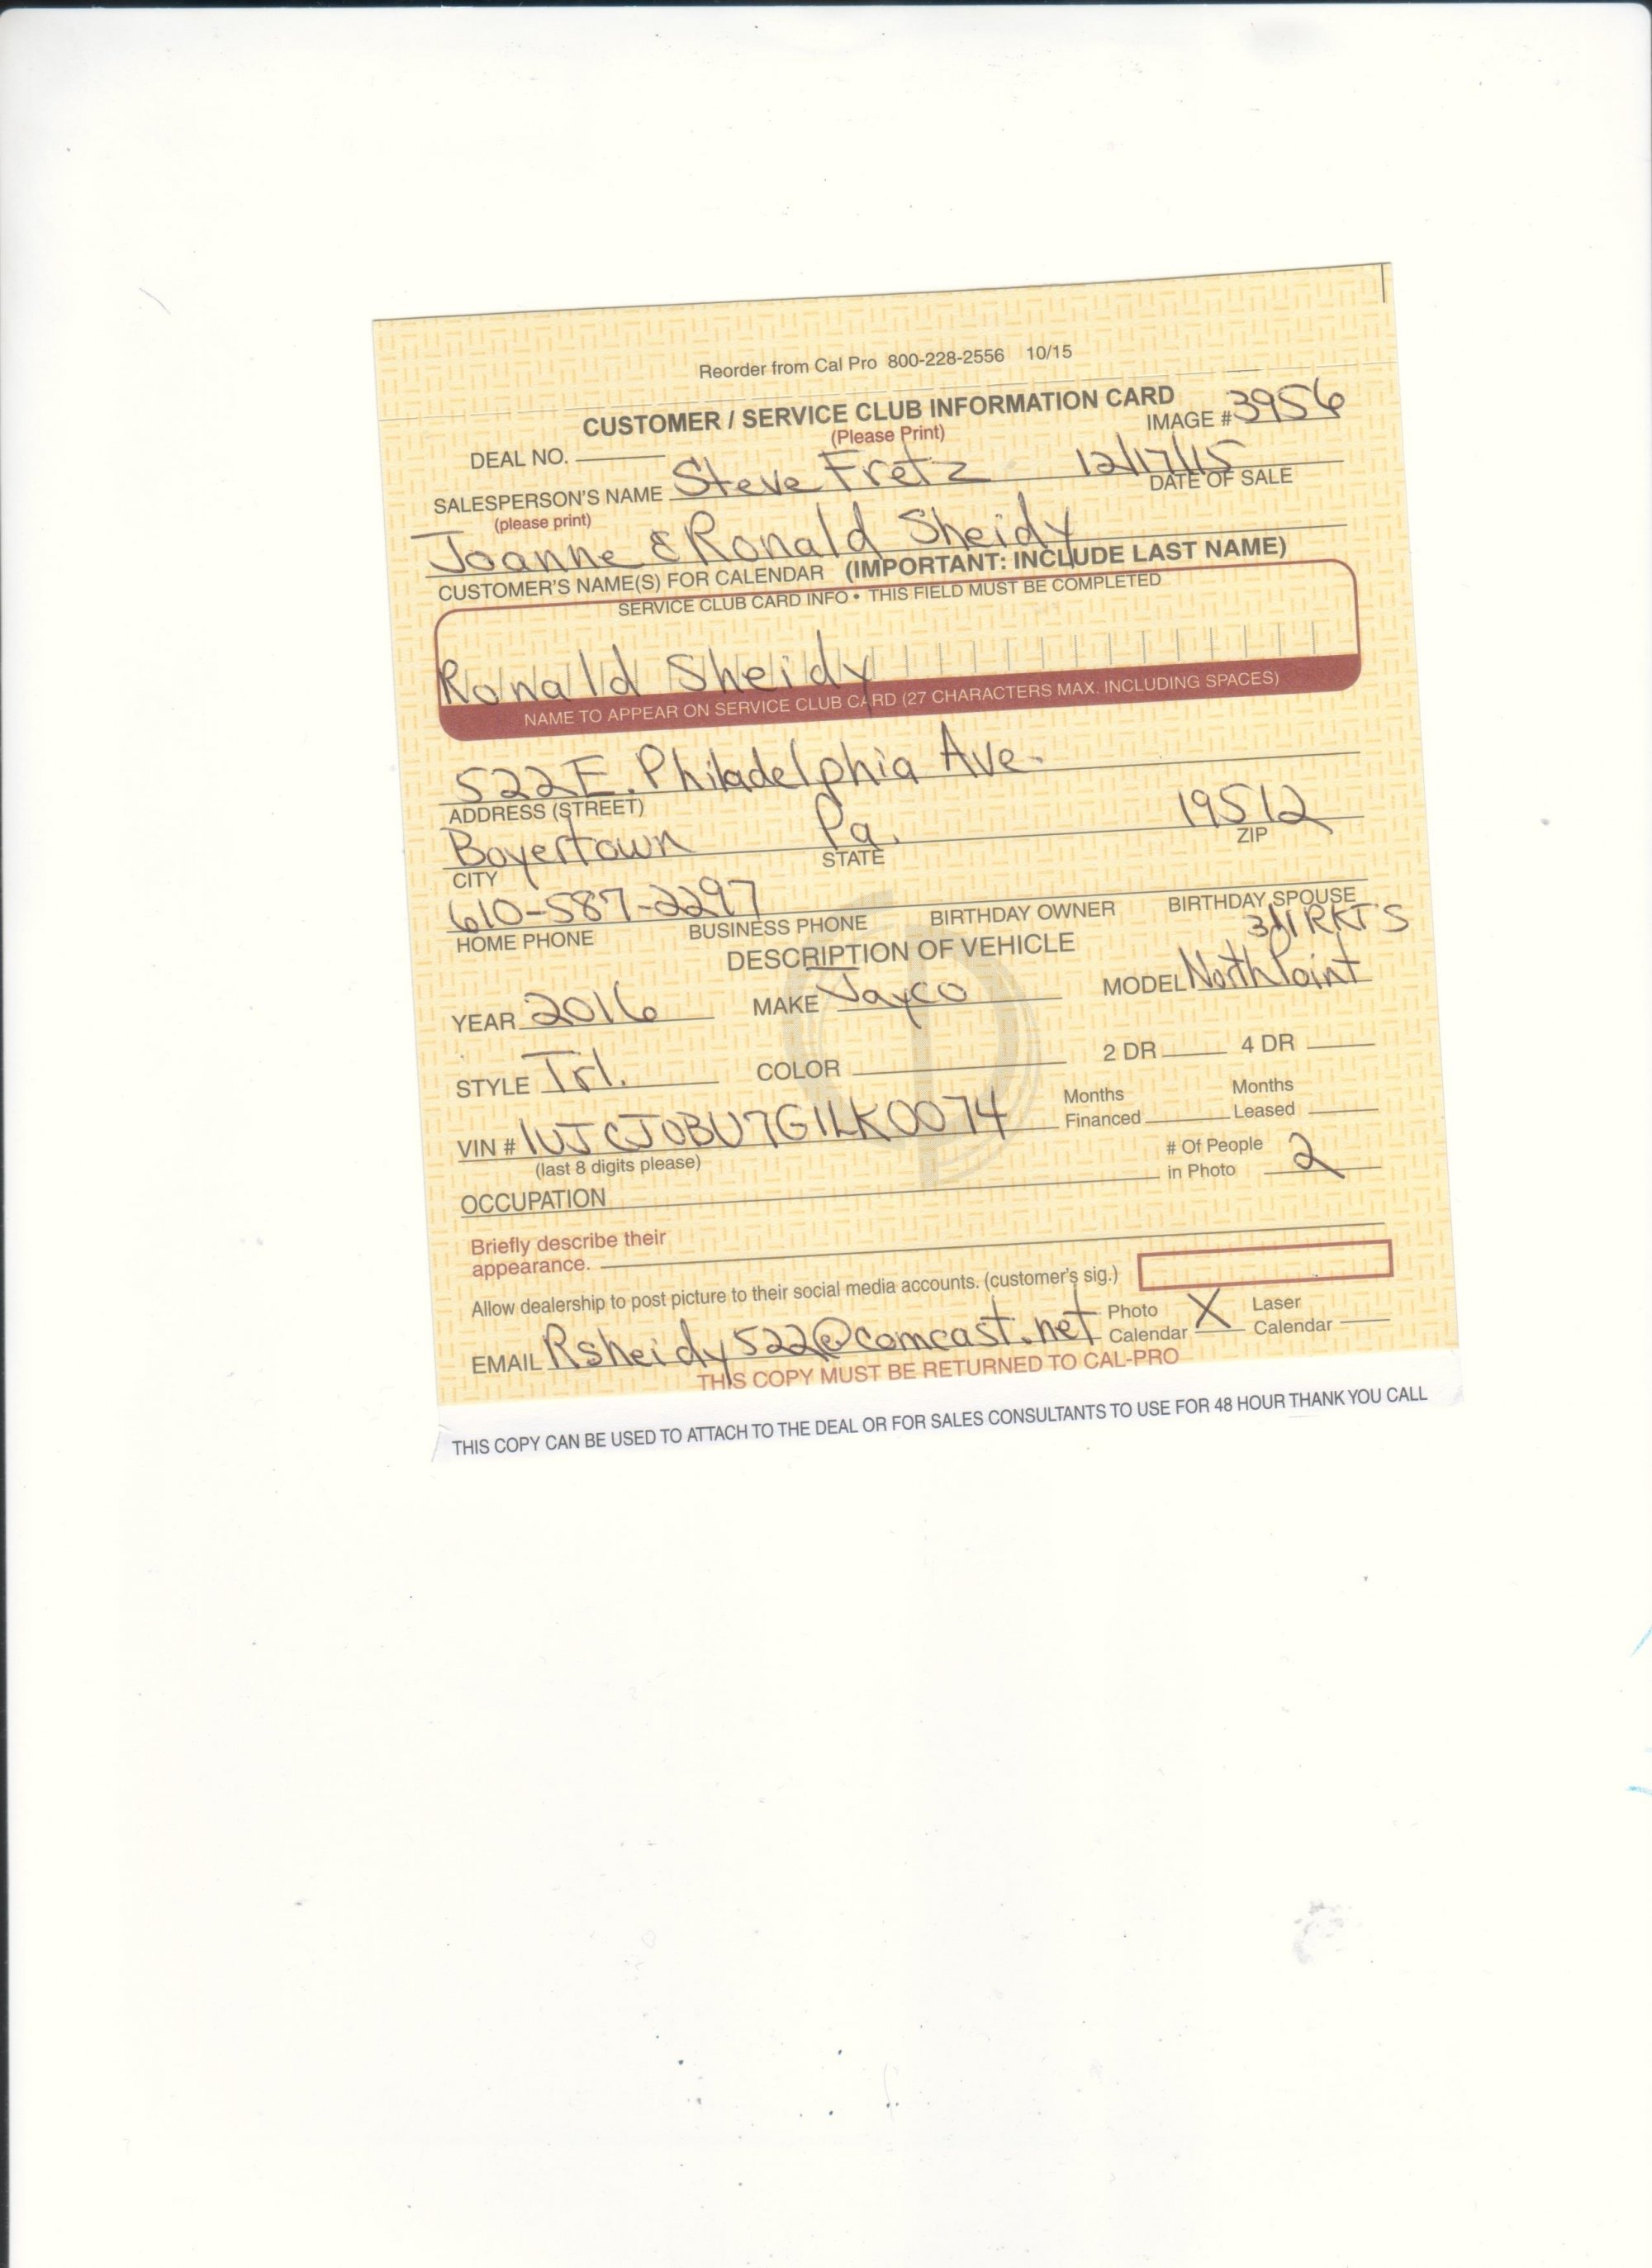 Reorder from Cal Pro 800-228-2556 10/15
CUSTOMER / SERVICE CLUB INFORMATION CARD
(Please Print)
IMAGE # 3956
DEAL NO.
SALESPERSON'S NAME Steve Fretz 12/17/15
(please print) DATE OF SALE
Joanne & Ronald Sheidy
CUSTOMER'S NAME(S) FOR CALENDAR (IMPORTANT: INCLUDE LAST NAME)
SERVICE CLUB CARD INFO • THIS FIELD MUST BE COMPLETED
Ronald Sheidy
NAME TO APPEAR ON SERVICE CLUB CARD (27 CHARACTERS MAX. INCLUDING SPACES)
522 E. Philadelphia Ave.
ADDRESS (STREET)
Boyertown Pa. 19512
CITY STATE ZIP
610-587-2297
HOME PHONE BUSINESS PHONE BIRTHDAY OWNER BIRTHDAY SPOUSE
DESCRIPTION OF VEHICLE
YEAR 2016 MAKE Jayco MODEL North Point
STYLE Trl. COLOR 2 DR 4 DR
VIN # 1UJCJ0BU7G1LK0074 Months Financed Months Leased
(last 8 digits please) # Of People in Photo 2
OCCUPATION
Briefly describe their
appearance.
Allow dealership to post picture to their social media accounts. (customer's sig.)
EMAIL Rsheidy522@comcast.net Photo Calendar X Laser Calendar
THIS COPY MUST BE RETURNED TO CAL-PRO
THIS COPY CAN BE USED TO ATTACH TO THE DEAL OR FOR SALES CONSULTANTS TO USE FOR 48 HOUR THANK YOU CALL